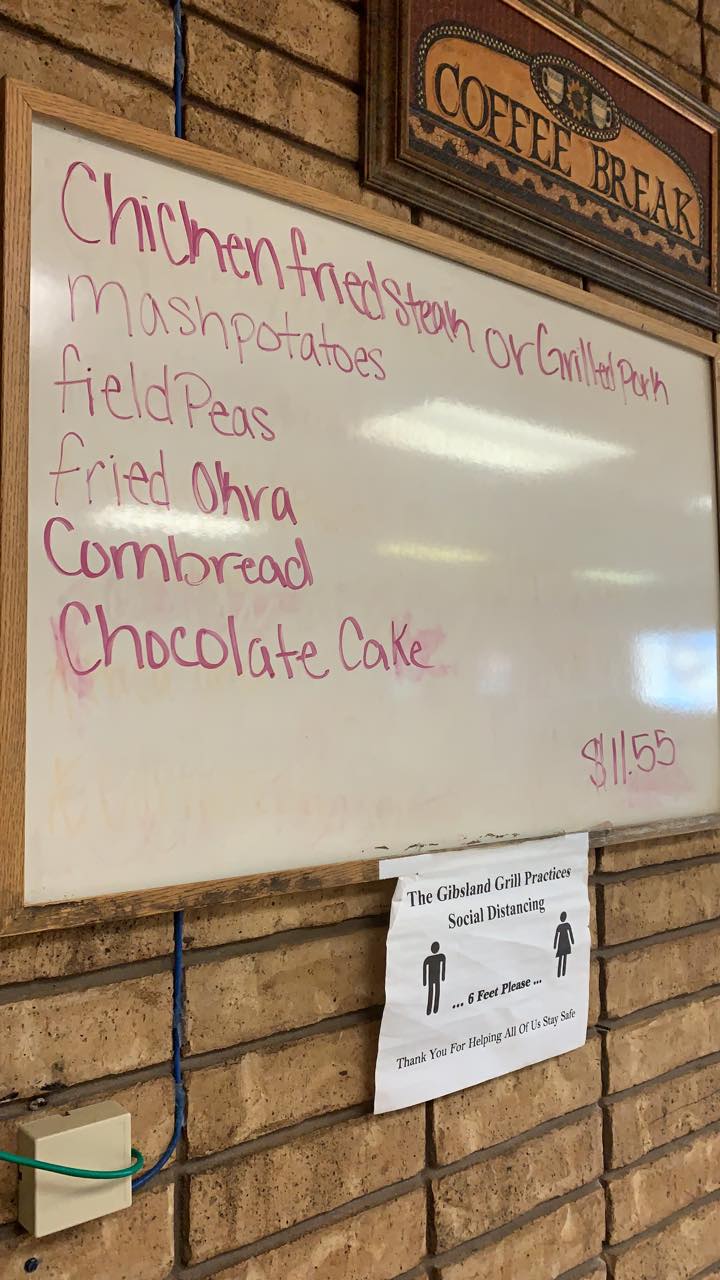 COFFEE BREAK
Chicken fried Steak or Grilled Pork
mashpotatoes
field Peas
fried Okra
Cornbread
Chocolate Cake
$11.55
The Gibsland Grill Practices
Social Distancing
... 6 Feet Please ...
Thank You For Helping All Of Us Stay Safe